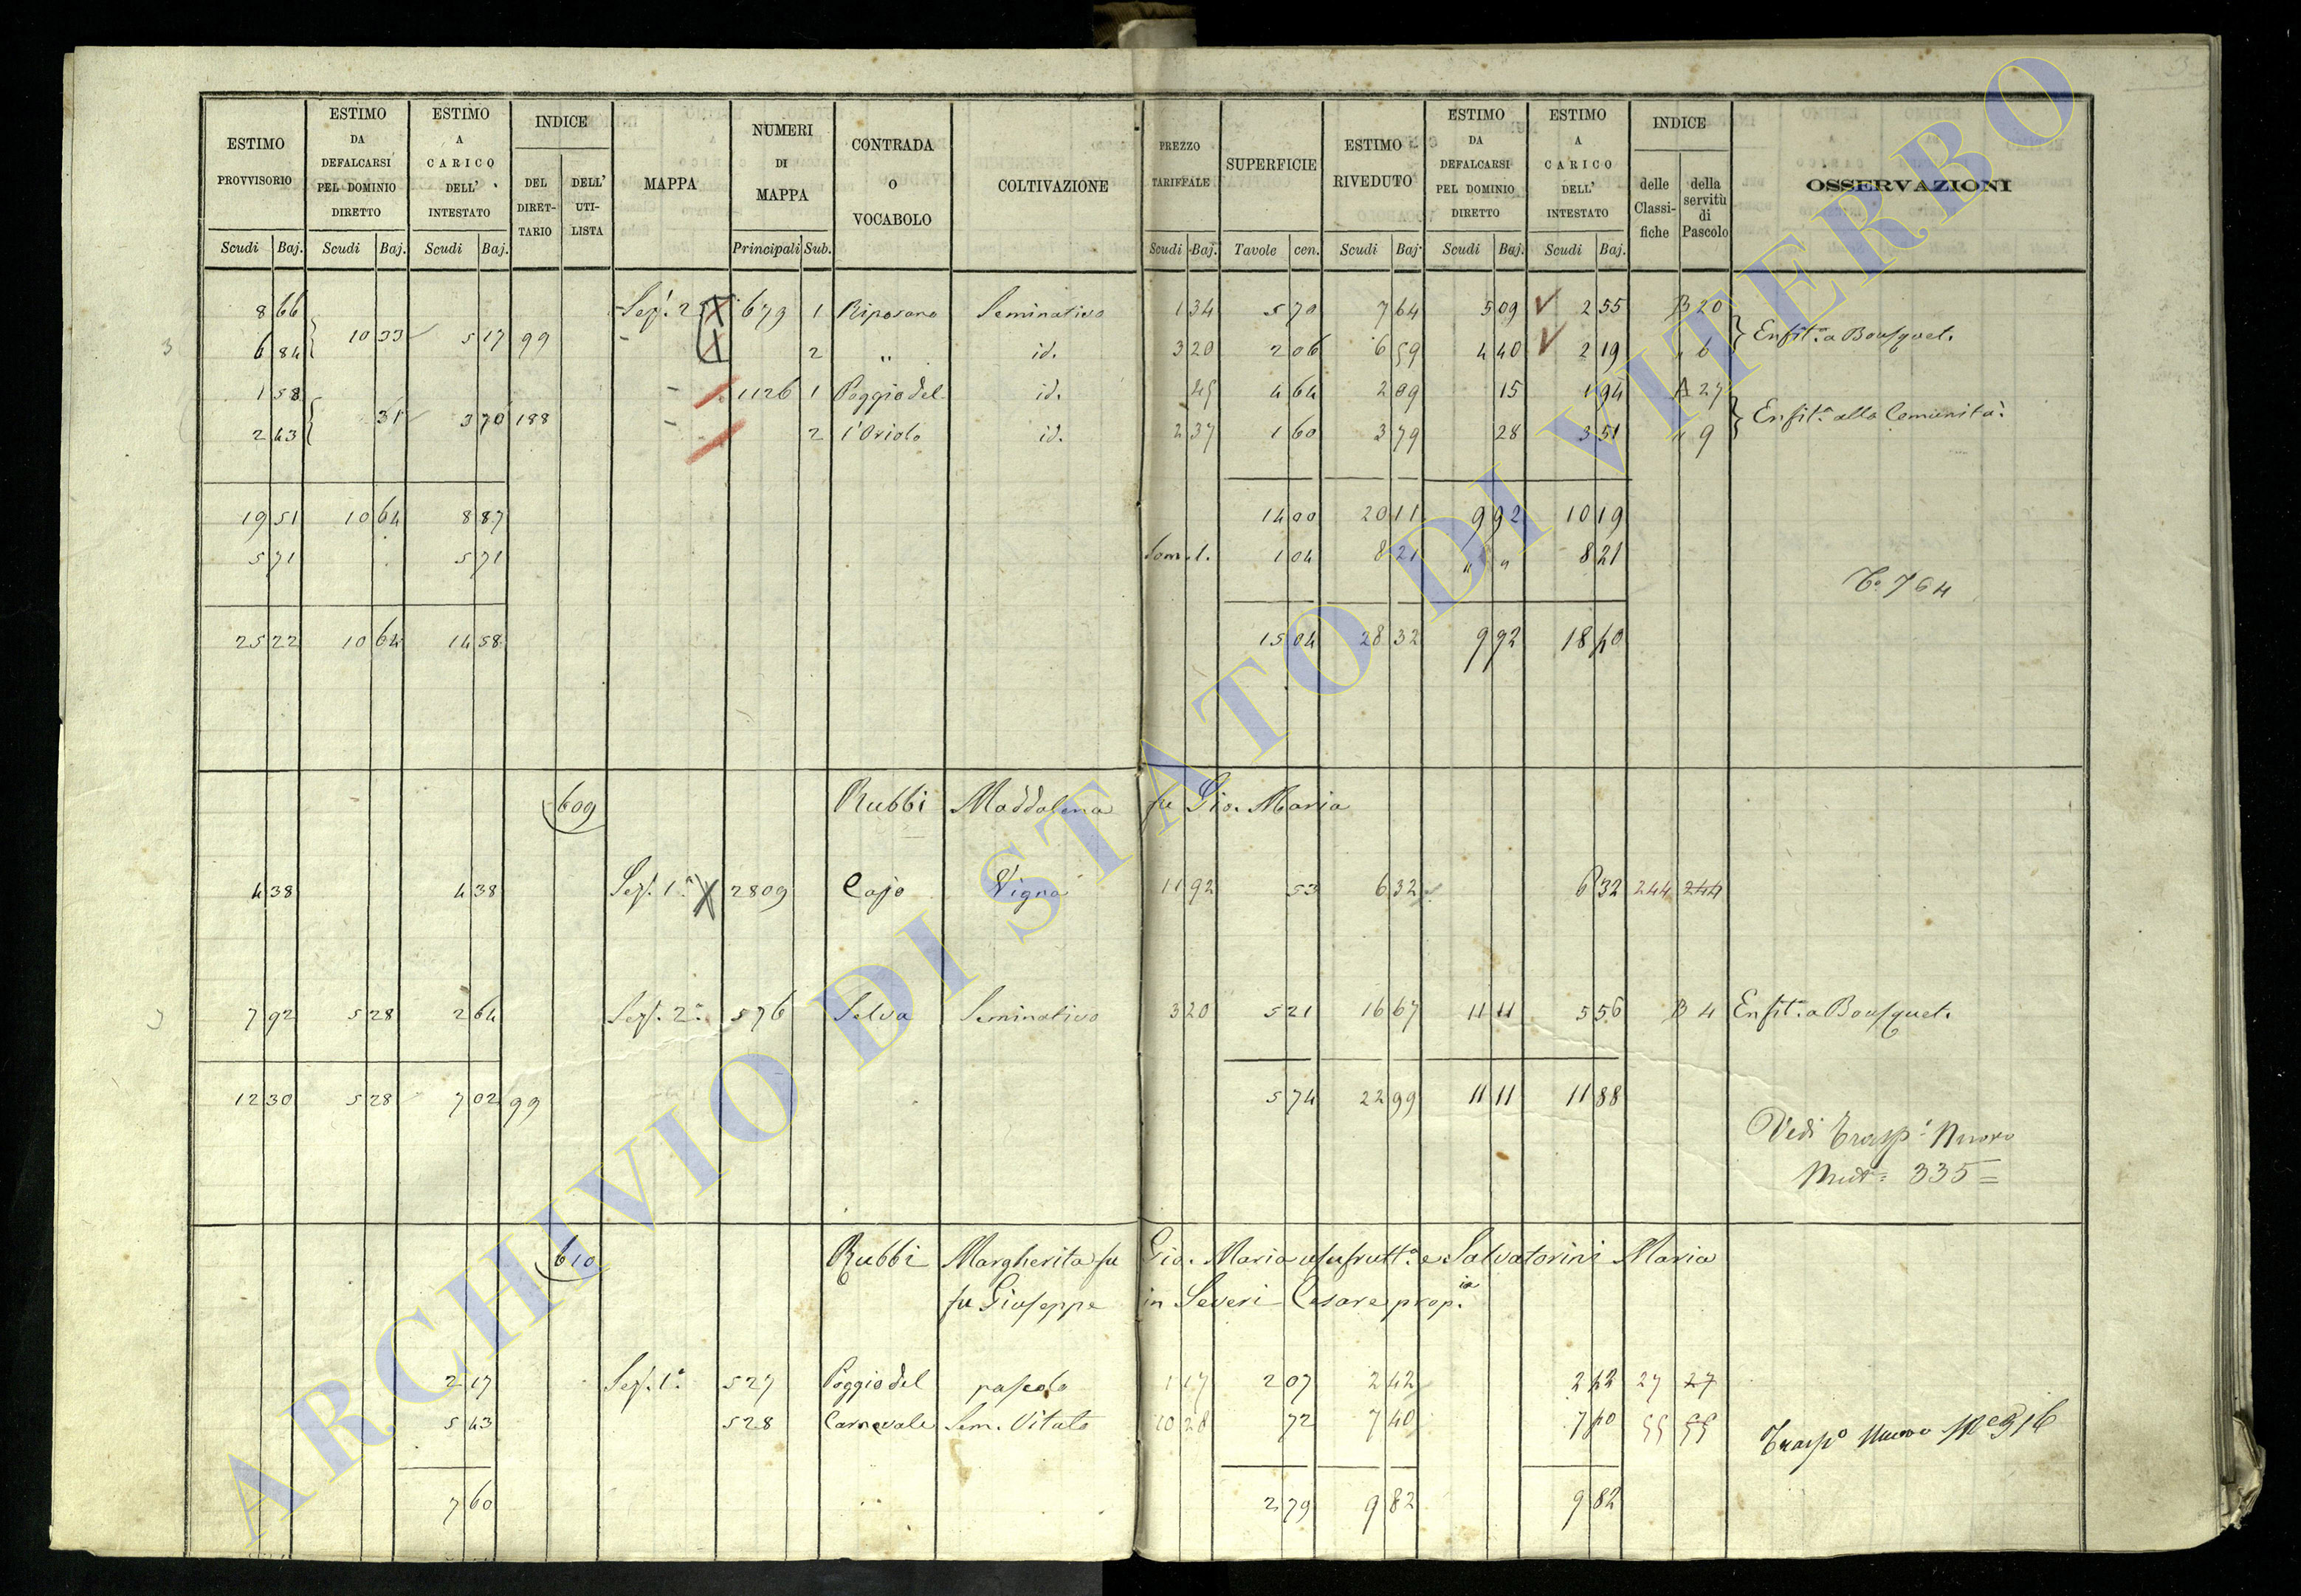 ESTIMO PROVVISORIO ESTIMO DA DEFALCARSI PEL DOMINIO DIRETTO ESTIMO A CARICO DELL' INTESTATO INDICE DEL DIRET-TARIO DELL' UTI-LISTA MAPPA NUMERI DI MAPPA CONTRADA O VOCABOLO COLTIVAZIONE PREZZO TARIFFALE SUPERFICIE ESTIMO RIVEDUTO ESTIMO DA DEFALCARSI PEL DOMINIO DIRETTO ESTIMO A CARICO DELL' INTESTATO INDICE delle Classi-fiche della servitù di Pascolo OSSERVAZIONI
Scudi Baj. Scudi Baj. Scudi Baj. Principali Sub. Scudi Baj. Tavole cen. Scudi Baj. Scudi Baj. Scudi Baj.
8 66 Sez. 2ª 679 1 Riposaro Seminativo 1 34 5 70 7 64 5 09 2 55 B 20
10 33 5 17 99 Enfit. a Bousquet.
6 84 2 " id. 3 20 2 06 6 59 4 40 2 19 " 6
1 58 1126 1 Poggio del id. 45 4 64 2 09 15 1 94 A 27
31 3 70 188 Enfit. alla Comunità
2 43 2 l'Oriolo id. 2 37 1 60 3 79 28 3 51 " 9
19 51 10 64 8 87 14 00 20 11 9 92 10 19
5 71 5 71 1 04 8 21 " " 8 21
764
25 22 10 64 14 58 15 04 28 32 9 92 18 40
609 Rubbi Maddalena fu Gio. Maria
4 38 4 38 Sez. 1ª 2809 Cajo Vigna 11 92 53 6 32 6 32 244 244
7 92 5 28 2 64 Sez. 2ª 576 Selva Seminativo 3 20 5 21 16 67 11 11 5 56 B 4 Enfit. a Bousquet.
12 30 5 28 7 02 99 5 74 22 99 11 11 11 88
Vedi Trasp. Nuovo
335
610 Rubbi Margherita fu Gio. Maria usufrutt.a e Salvatorini Maria
fu Giuseppe in Severi Cesare prop.ia
2 17 Sez. 1ª 527 Poggio del pascolo 1 17 2 07 2 42 2 42 27 27
5 43 528 Carnevale Sem. Vitato 10 28 72 7 40 7 40 55 55
Traspo Nuovo
7 60 2 79 9 82 9 82
ARCHIVIO DI STATO DI VITERBO